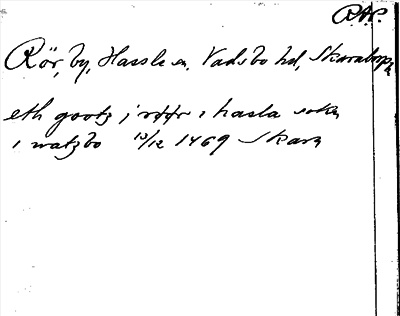 RAP.
Rör, by, Hassle sn. Vadsbo hd, Skarabgs
eth gootz j røør i hasla sokn
i watzbo 13/12 1469 Skara